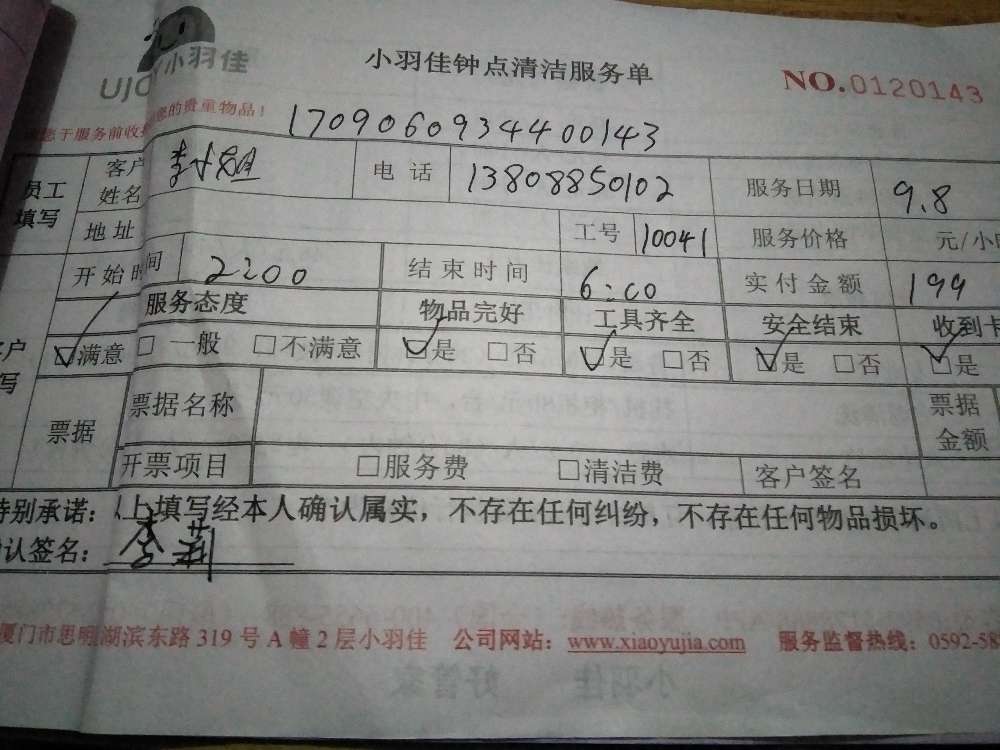 小羽佳 小羽佳钟点清洁服务单 NO.0120143
您的贵重物品！
17090609344400143
员工填写 客户姓名 电话 13808850102 服务日期 9.8
地址 工号 10041 服务价格 元/小
开始时间 2:00 结束时间 6:00 实付金额 199
服务态度 物品完好 工具齐全 安全结束 收到卡
☑满意 □一般 □不满意 ☑是 □否 ☑是 □否 ☑是 □否 ☑是
票据 票据名称 票据金额
开票项目 □服务费 □清洁费 客户签名
特别承诺：以上填写经本人确认属实，不存在任何纠纷，不存在任何物品损坏。
认签名：李莉
厦门市思明湖滨东路 319 号 A 幢 2 层小羽佳 公司网站：www.xiaoyujia.com 服务监督热线：0592-58